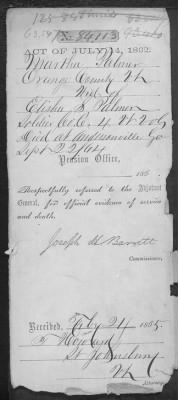 ACT OF JULY 14, 1862.
Martha Palmer
Orange County Vt
Wid of
Elisha B. Palmer
Died at Andersonville Ga
Sept 22/64
Pension Office,
186
Respectfully referred to the Adjutant
General, for official evidence of service
and death.
Joseph H Barrett
Commissioner.
Received, Feby 24 1865.
St Johnsbury
Vt
Attorney.